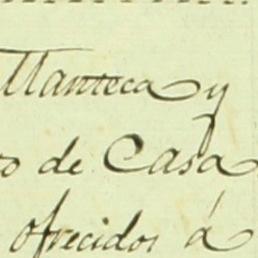 Manteca y
de Casa
ofrecidos á